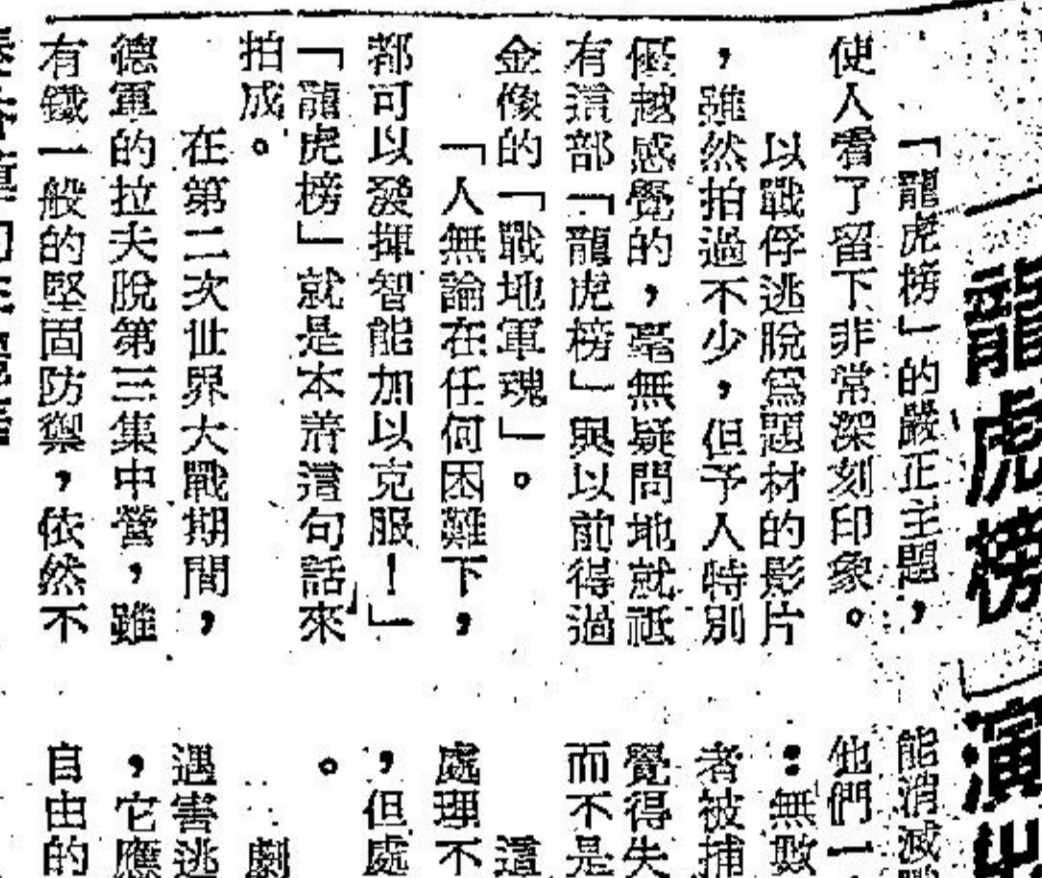 「龍虎榜」演出
「龍虎榜」的嚴正主題，
使人看了留下非常深刻印象。
以戰俘逃脫爲題材的影片
，雖然拍過不少，但予人特別
優越感覺的，毫無疑問地就祗
有這部「龍虎榜」與以前得過
金像的「戰地軍魂」。
「人無論在任何困難下，
都可以發揮智能加以克服！」
「龍虎榜」就是本着這句話來
拍成。
在第二次世界大戰期間，
德軍的拉夫脫第三集中營，雖
有鐵一般的堅固防禦，依然不
能消滅戰
他們一
：無數
者被捕
覺得失
而不是
這
處理不
，但處
。
劇
遇害逃
，它應
自由的